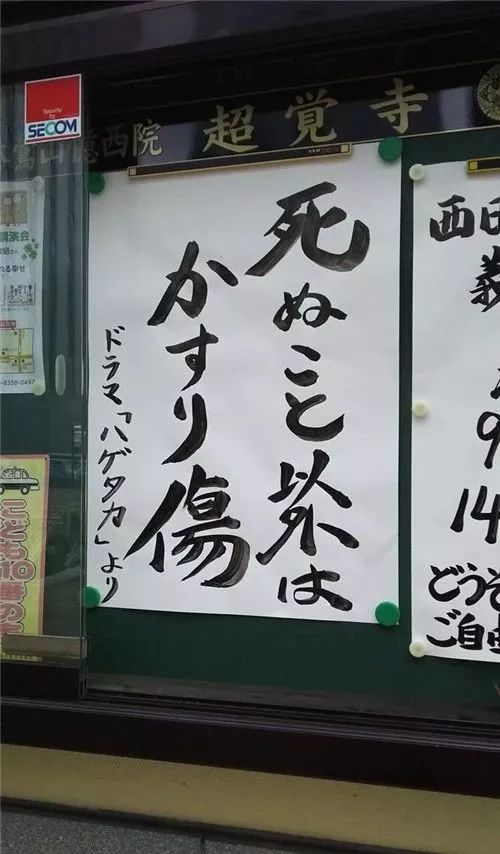 Security
by
SECOM
山憶西院 超覚寺
死ぬこと以外は
かすり傷
ドラマ「ハゲタカ」より
講演会
れる幸せ
8358-0497
こども110番の
西田
義
9
14
どうぞ
ご自由